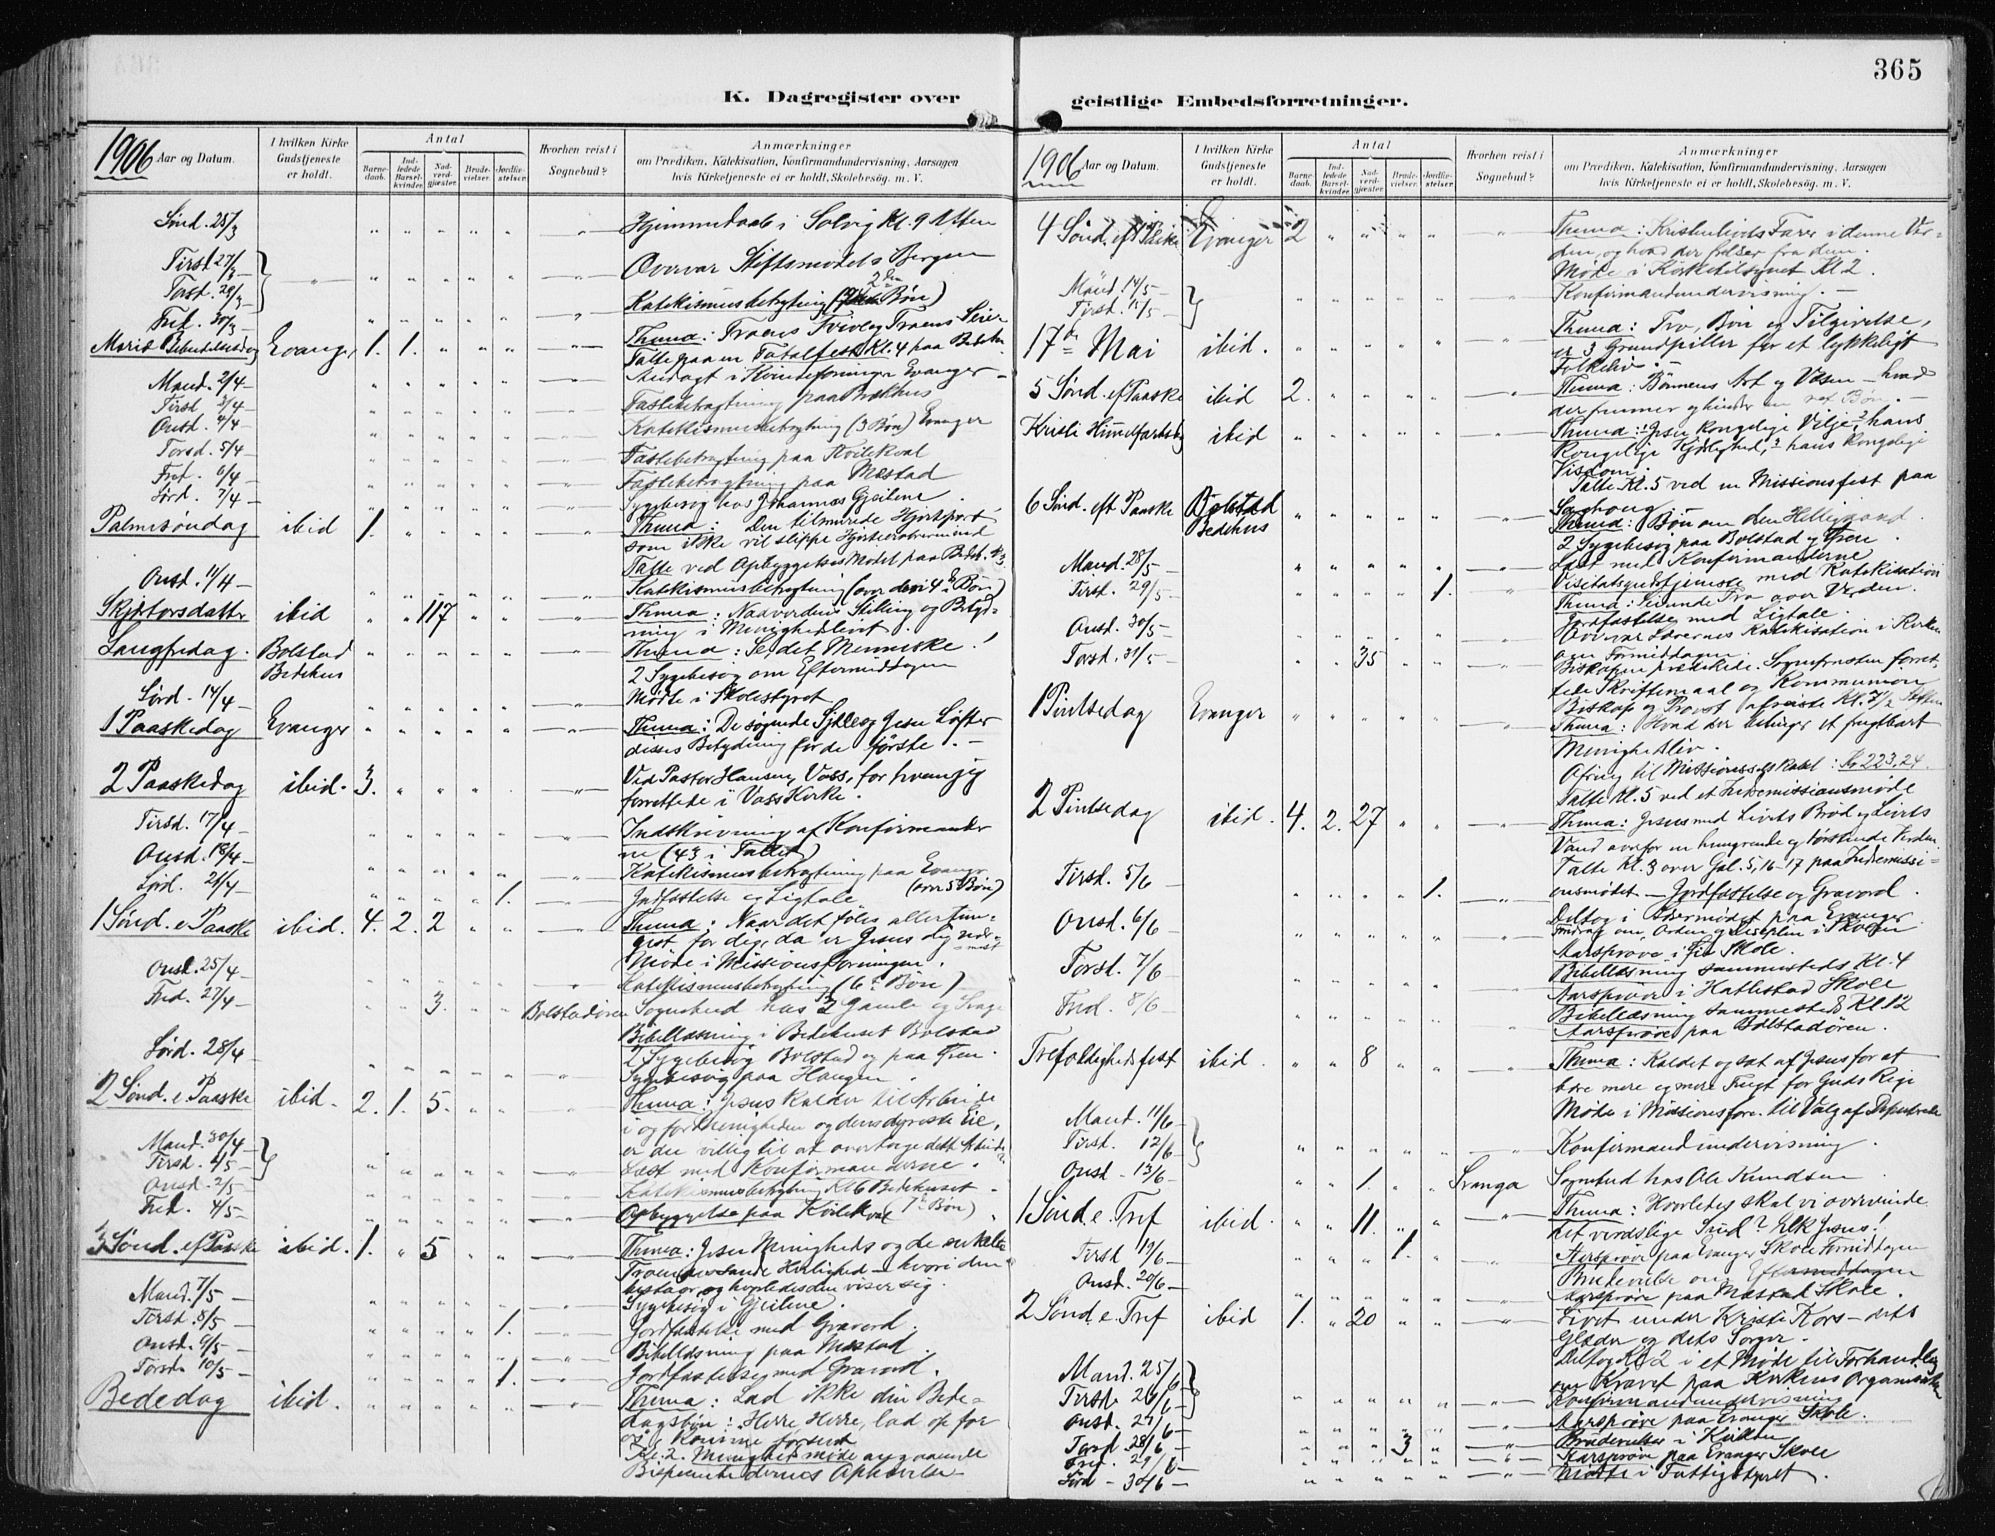 365
K. Dagregister over
geistlige Embedsforretninger.
1906 Aar og Datum.
I hvilken Kirke Gudstjeneste er holdt.
Antal
Barnedaab.
Indledede Barselkvinder.
Nadverdgjæster.
Brudevielser.
Jordfæstelser.
Hvorhen reist i Sognebud?
Anmærkninger
om Prædiken, Katekisation, Konfirmandundervisning, Aarsagen
hvis Kirketjeneste ei er holdt, Skolebesøg, m. V.
Sønd. 25/3 Hjemmedaab i Solvig Kl. 9 Aften
Tirsd. 27/3
Torsd. 29/3 Overvar Stiftsmødet i Bergen
Fred. 30/3 Katekismusbetragtning (2den Bøn)
Mariæ Bebudelsesdag Evanger 1. 1. Thema: Troens Tvivl og Troens Seier
Talte paa en Totalfest Kl. 4 paa Bedeh.
Mand. 2/4 Andagt i Kvindeforeningen Evanger
Tirsd. 3/4 Fastebetragtning paa Brækhus
Onsd. 4/4 Katekismusbetragtning (3 Bøn) Evanger
Torsd. 5/4 Fastebetragtning paa Kvilekval
Fred. 6/4 Fastebetragtning paa Mestad
Lørd. 7/4 Sygebesøg hos Johannes Gjeilene
Palmesøndag ibid 1. Thema: Den tilmurede Hjerteport
som ikke vil slippe Hjerteerobreren ind
Talte ved Opbyggelses Mødet paa Bedeh.
Onsd. 11/4 Katekismusbetragtning (over den 4de Bøn)
Skjærtorsdag ibid 117 Thema: Nadverdens Stilling og Betyd-
ning i Menighedslivet.
Langfredag. Bolstad Bedehus Thema: Se, det Menneske!
2 Sygebesøg om Eftermiddagen
Lørd. 14/4 Møtte i Skolestyret
1 Paaskedag Evanger Thema: De søgende Sjæle og Jesu Løfter
disses Betydning for de første.
2 Paaskedag ibid. 3. Ved Pastor Hansen, Voss, for hvem jeg
forrettede i Voss Kirke.
Tirsd. 17/4 Indskrivning af Konfirmander
ne (43 i Tallet)
Onsd. 18/4 Katekismusbetragtning paa Evanger
(over 5 Bøn)
Lørd. 21/4 1. Jordfæstelse og Ligtale
1 Sønd. e. Paaske ibid. 4. 2. 2 Thema: Naar det føles allertun-
gest for dig, da er Jesus dig nær-
mest
Møde i Missionsforeningen.
Onsd. 25/4 Katekismusbetragtning (6te Bøn)
Fred. 27/4 3. Bolstadøren Sognebud hos 2 Gamle og Svage
Bibellæsning i Bedehuset Bolstad
Lørd. 28/4 2 Sygebesøg Bolstad og paa Fjen.
Sygebesøg paa Haugen.
2 Sønd. e. Paaske ibid. 2. 1. 5. Thema: Jesus kalder til Arbeide
i og for Menigheden og dens dyreste Eie,
er du villig til at overtage dette Arbeide
Mand. 30/4
Tirsd. 1/5 Læst med Konfirmanderne.
Onsd. 2/5 Katekismusbetragtning Kl 6 Bedehuset
(7de Bøn)
Fred. 4/5 Opbyggelse paa Kvilekval
3 Sønd. ef Paaske ibid. 1. 5 Thema: Jesu Menigheds og de enkelte
Troendes sande Herlighed – hvori den
bestaar og hvorledes den viser sig.
Mand. 7/5 Sygebesøg i Gjeilene.
Tirsd. 8/5 1. Jordfæstelse med Gravord.
Onsd. 9/5 Bibellæsning paa Mestad.
Torsd. 10/5 1. Jordfæstelse med Gravord.
Bededag ibid. Thema: Lad ikke din Bede-
dagsbøn: Herre Herre, lad op for
os, komme forsent
Kl. 2. Menighedsmøde angaaende
Bispeembedernes Ophævelse
1906 Aar og Datum.
I hvilken Kirke Gudstjeneste er holdt.
Antal
Barnedaab.
Indledede Barselkvinder.
Nadverdgjæster.
Brudevielser.
Jordfæstelser.
Hvorhen reist i Sognebud?
Anmærkninger
om Prædiken, Katekisation, Konfirmandundervisning, Aarsagen
hvis Kirketjeneste ei er holdt, Skolebesøg, m. V.
4 Sønd. eft Paaske Evanger 2 Thema: Kristenlivets Farer i denne Ver-
den, og hvad der frelser fra dem.
Møde i Kirketilsynet Kl 2.
Mand. 14/5
Tirsd. 15/5 Konfirmandundervisning.
17de Mai ibid. Thema: Tro, Bøn og Tilgivelse,
er 3 Grundpiller for et lykkeligt
Folkeliv.
5 Sønd. ef Paaske ibid 2. Thema: Bønnens Art og Væsen – hvad
der fremmer og hindrer en ret Bøn.
Kristi Himmelfartsdag ibid Thema: 1 Jesu kongelige Vilje, 2 hans
Kongelige Kjærlighed, 3 hans kongelige
Visdom.
Talte Kl. 5 ved en Missionsfest paa
6 Sønd. eft Paaske Bolstad Bedehus Thema: Bøn om den Helligaand
2 Sygebesøg paa Bolstad og Fjen.
Mand. 28/5 Læst med Konfirmanderne
Tirsd. 29/5 1. Visitatsgudstjeneste med Katekisation
Thema: Seirende Tro over Verden.
Jordfæstelse med Ligtale.
Onsd. 30/5 Overvar Lærernes Katekisation i Kirken
om Formiddagen.
Torsd. 31/5 35 Biskopen prædikede. Sognepresten forret-
tede Skriftemaal og Kommunion
Biskop og Provst afreiste Kl. 7 1/2 Aften
1 Pintsedag Evanger Thema: Hvad der betinger et frugtbart
Menighedsliv.
Ofring til Missionsselskabet: Kr 223,24.
Talte Kl. 5 ved et Indremissionsmøde
2 Pintsedag ibid. 4. 2. 27 Thema: Jesus med Livets Brød og Livets
Vand overfor en hungrende og tørstende Verden.
Talte Kl. 3 over Gal. 5, 16-17 paa Indremissi-
onsmødet
Tirsd. 5/6 1. Jordfæstelse og Gravord.
Onsd. 6/6 Deltog i Lærermødet paa Evanger
Foredrag om, Orden og Disciplin i Skolen
Torsd. 7/6 Aarsprøve i Fjø Skole.
Bibellæsning sammesteds Kl. 4
Fred. 8/6 Aarsprøve i Hatlestad Skole
Bibellæsning sammesteds Kl 12
Aarsprøve paa Bolstadøren.
Trefoldighedsfest ibid. 8 Thema: Kaldet og sat af Jesus for at
bære mere og mere Frugt for Guds Rige
Møde i Missionsfore. til Valg af Deputerede
Mand. 11/6
Tirsd. 12/6 Konfirmandundervisning.
Onsd. 13/6 1. Svanga Sognebud hos Ole Knudsen
1 Sønd e. Tref ibid. 11. Thema: Hvorledes skal vi overvinde
det verdslige Sind? Elsk Jesus!
Tirsd 19/6 1. Aarsprøve paa Evanger Skole Formiddagen
Brudevielse om Eftermiddagen
Onsd. 20/6 Aarsprøve paa Mestad Skole.
2 Sønd e. Tref ibid 1. 20 Livet under Kristi Kors – dets
Glæder og dets Sorger.
Deltog Kl 2 i et Møde til Forhandling
om Kravet paa Kirkens Organisation
Mand. 25/6
Tirsd. 26/6 Konfirmandundervisning
Onsd. 27/6 Aarsprøve paa Evanger Skole.
Torsd. 28/6 3 Brudevielser i Kirken
Fred. 29/6 Aarsprøve paa Evanger Skole
Lørd – 30/6 Møtte i Fattigstyret.